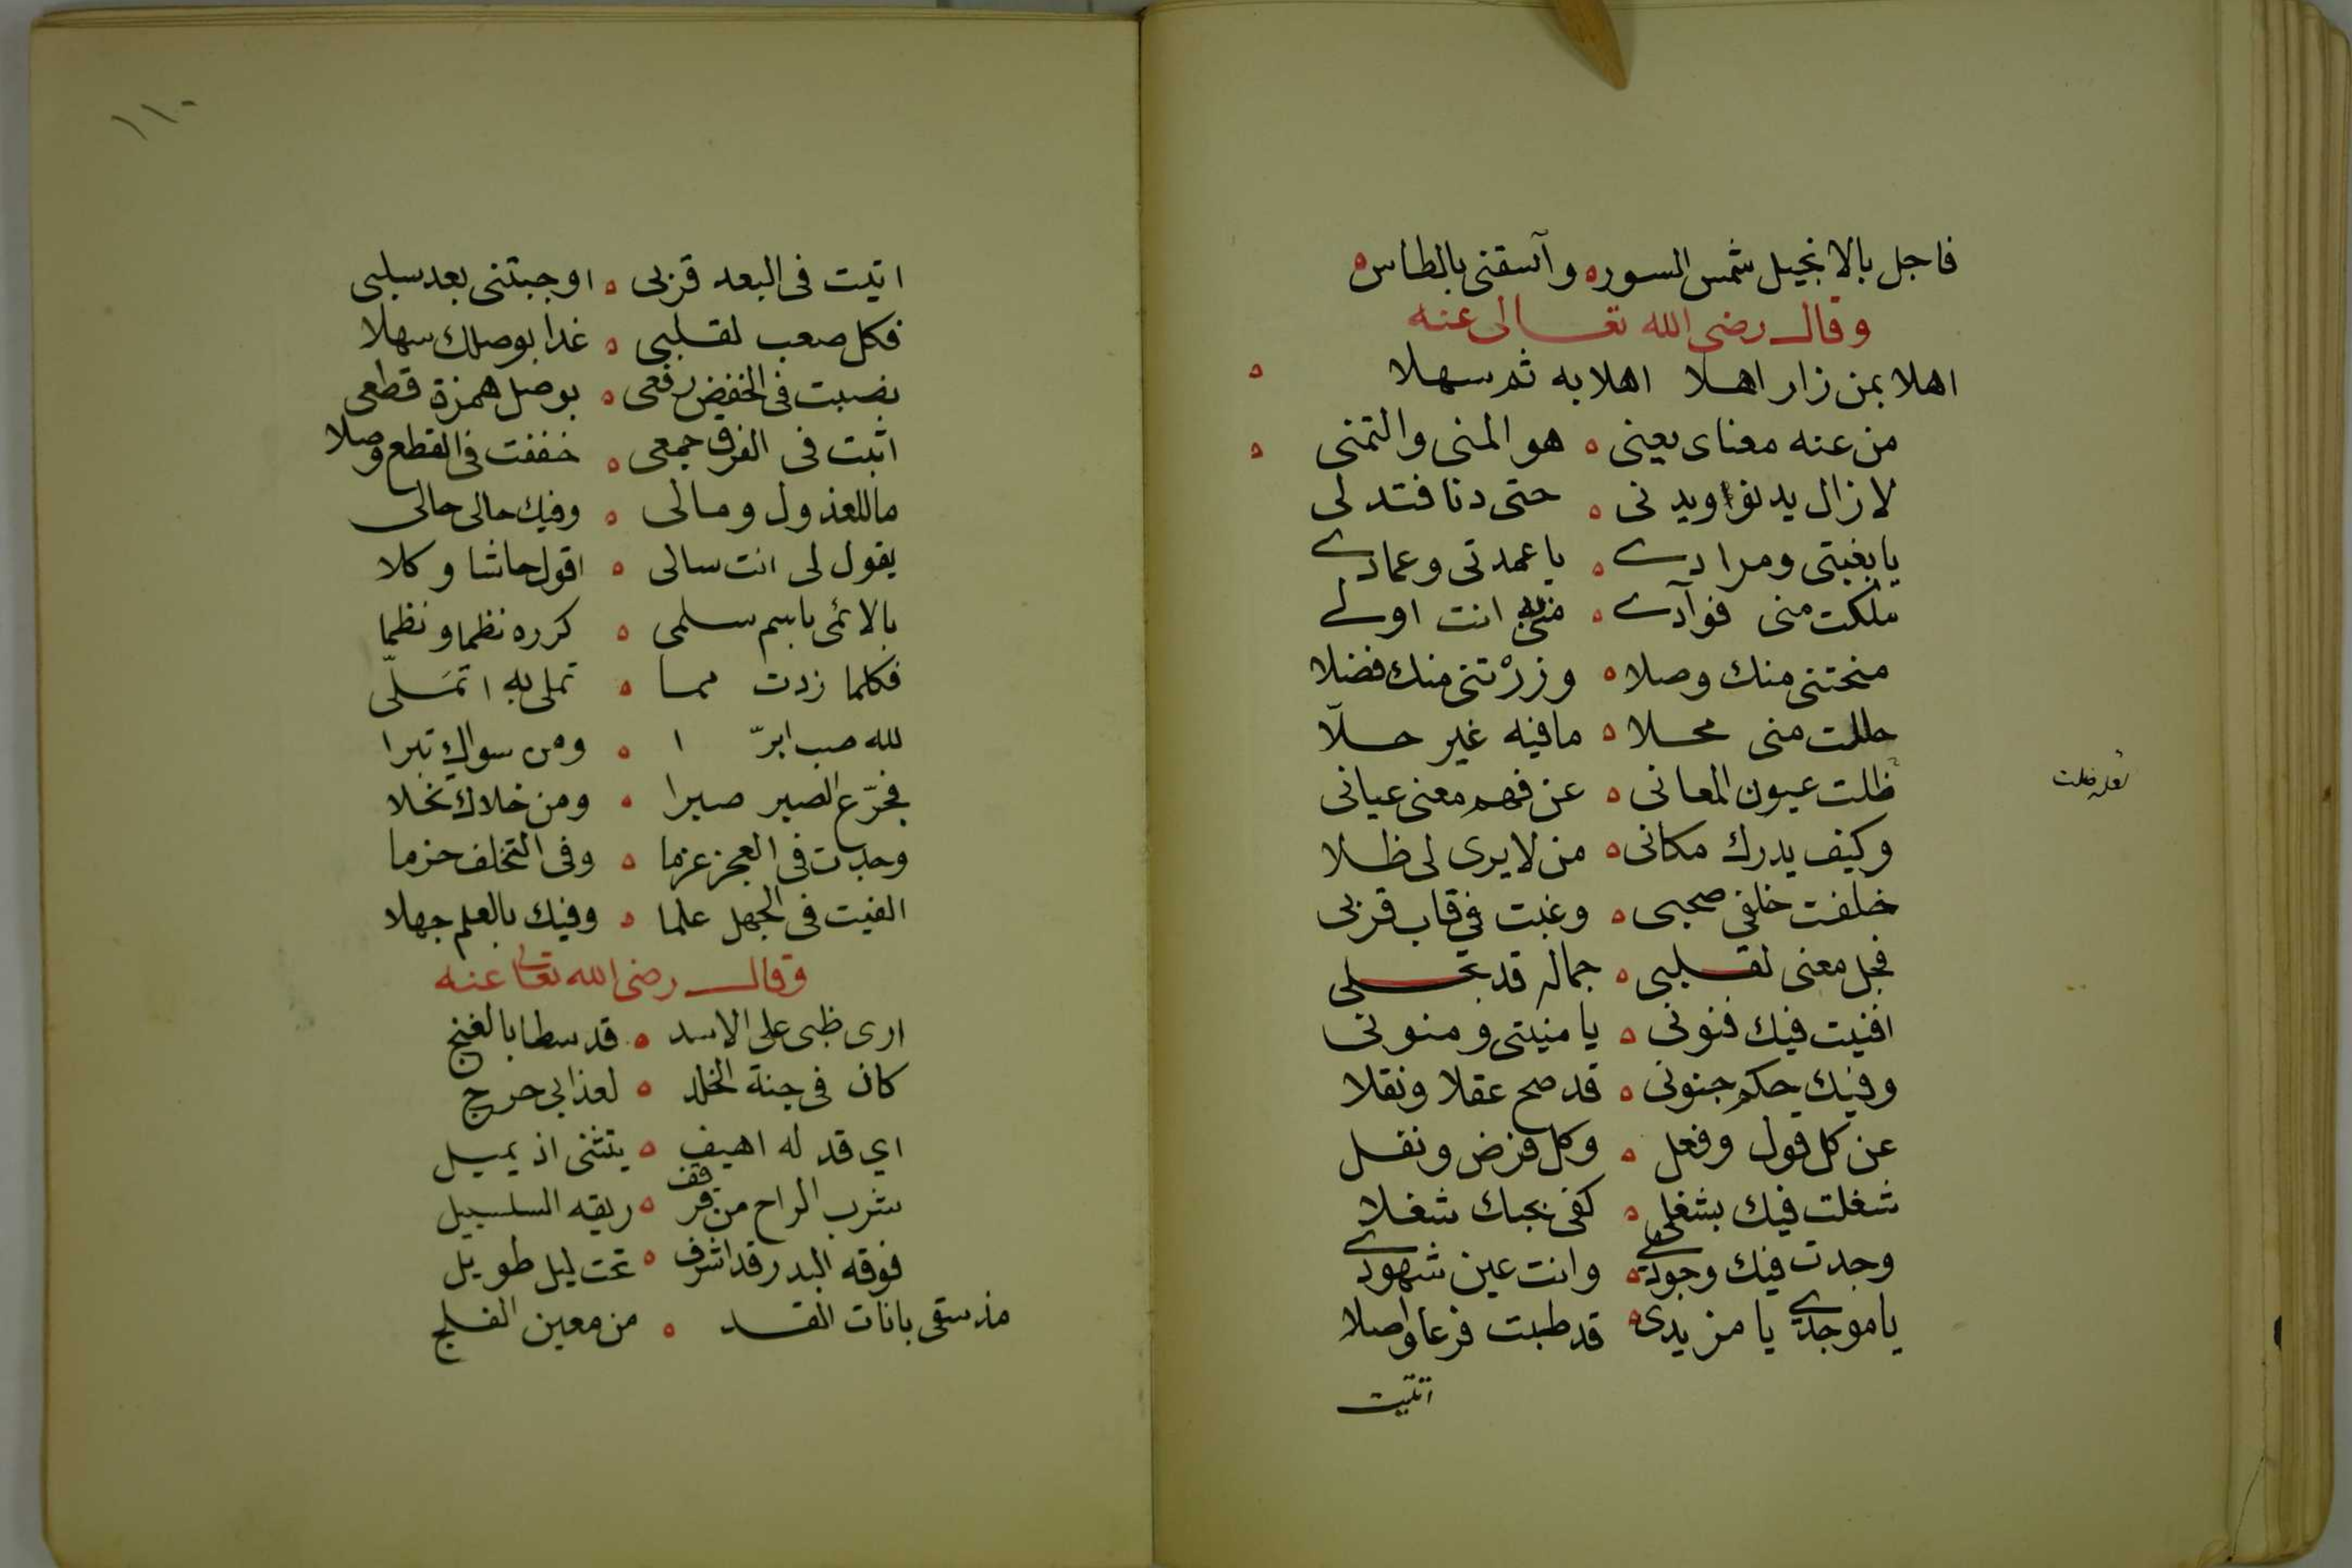 فاجل بالانجيل شمس السور ه وآسقنى بالطاس ه
وقال رضى الله تعالى عنه
اهلا بمن زار اهلا اهلا به ثم سهلا ه
من عنه معناى يعنى ه هو المنى والتمنى ه
لازال يدنو ويدنى ه حتى دنا فتدلى
يا بغيتى ومرادى ه يا عمدتى وعمادى
ملكت منى فوآدى ه منى به انت اولى
منحتنى منك وصلا ه وزرْتنى منك فضلا
حللت منى محلا ه مافيه غير حلّا
ظلت عيون المعانى ه عن فهم معنى عيانى
لعله ضلت
وكيف يدرك مكانى ه من لا يرى لى ظلا
خلفت خلفى صحبى ه وغبت فى قاب قربى
فجل معنى لقلبى ه جماله قد تجلى
افنيت فيك فنونى ه يا منيتى ومنونى
وفيك حكم جنونى ه قد صح عقلا ونقلا
عن كل قول وفعل ه وكل فرض ونفل
شغلت فيك بشغلى ه كفى بحبك شغلا
وجدت فيك وجودى ه وانت عين شهودى
يا موجدى يا مزيدى ه قد طبت فرعا واصلا
اتيت
١١٠
اتيت فى البعد قربى ه اوجبتنى بعد سلبى
فكل صعب لقلبى ه غدا بوصلك سهلا
نصبت فى الخفض رفعى ه بوصل همزة قطعى
اثبت فى الفرق جمعى ه خففت فى القطع وصلا
ماللعذول ومالى ه وفيك حالى حالى
يقول لى انت سالى ه اقول حاشا وكلا
يالائمى باسم سلمى ه كرره نظما ونظما
فكلما زدت مما ه تملى به اتسَلّى
لله صب ابرّ ا ه ومن سواك تبرا
فجرّع الصبر صبرا ه ومن خلاك تخلا
وجدت فى العجز عزما ه وفى التخلف حزما
الفيت فى الجهل علما ه وفيك بالعلم جهلا
وقال رضى الله تعالى عنه
ارى ظبى على الاسد ه قد سطا بالغنج
كان فى جنة الخلد ه لعذابى حرج
اي قد له اهيف ه يتثنى اذ يميل
شرب الراح من قرقف ه ريقه السلسبيل
فوقه البدر قد اشرف ه تحت ليل طويل
مذ سقى بانات القد ه من معين الفلج